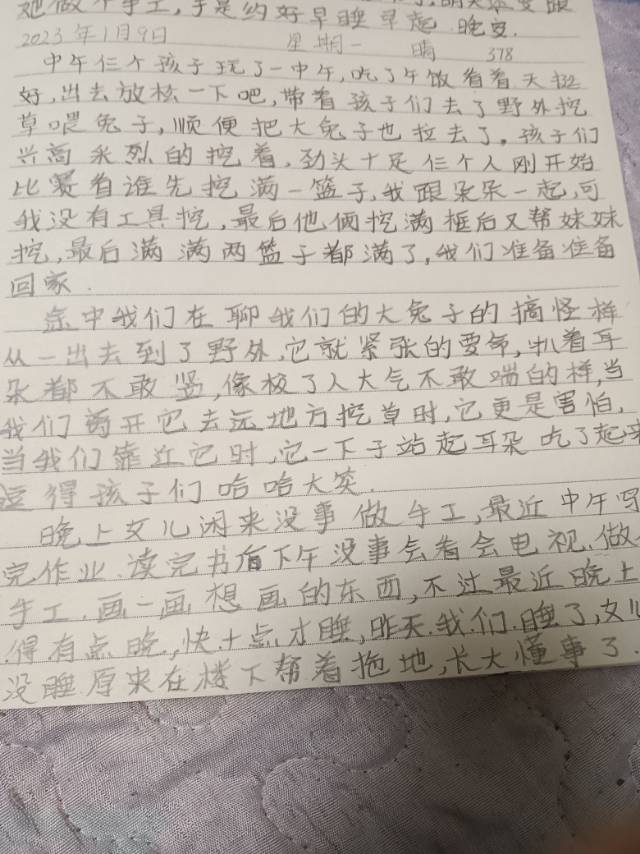 她做个手工,于是约好早睡早起 晚安.
2023年1月9日 星期一 晴 378
中午仨个孩子玩了一中午,吃了午饭看看天挺
好,出去放松一下吧,带着孩子们去了野外挖
草喂兔子,顺便把大兔子也拉去了。孩子们
兴高采烈的挖着,劲头十足仨个人刚开始
比赛看谁先挖满一篮子,我跟朵朵一起,可
我没有工具挖,最后他俩挖满框后又帮妹妹
挖,最后满满两篮子都满了,我们准备准备
回家.
途中我们在聊我们的大兔子的搞怪样
从一出去到了野外,它就紧张的要命,趴着耳
朵都不敢竖,像极了人大气不敢喘的样,当
我们离开它去远地方挖草时,它更是害怕,
当我们靠近它时,它一下子站起耳朵吃了起来
逗得孩子们哈哈大笑.
晚上女儿闲来没事做手工,最近中午写
完作业.读完书后下午没事会看会电视.做
手工.画一画想画的东西,不过最近晚上
得有点晚,快十点才睡,昨天我们睡了,女儿
没睡原来在楼下帮着拖地,长大懂事了.